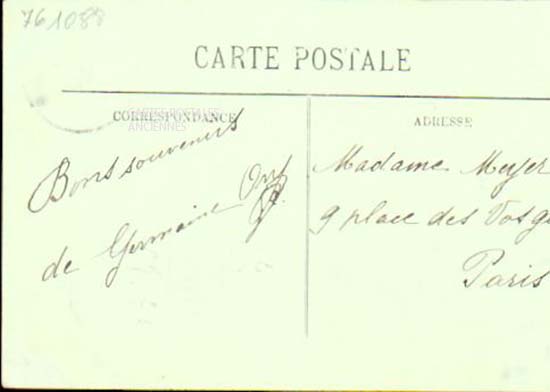 761088
CARTE POSTALE
CORRESPONDANCE
CARTES POSTALES
ANCIENNES
ADRESSE
Bons souvenirs
de Germaine
Madame Meyer
9 place des Vosg
Paris